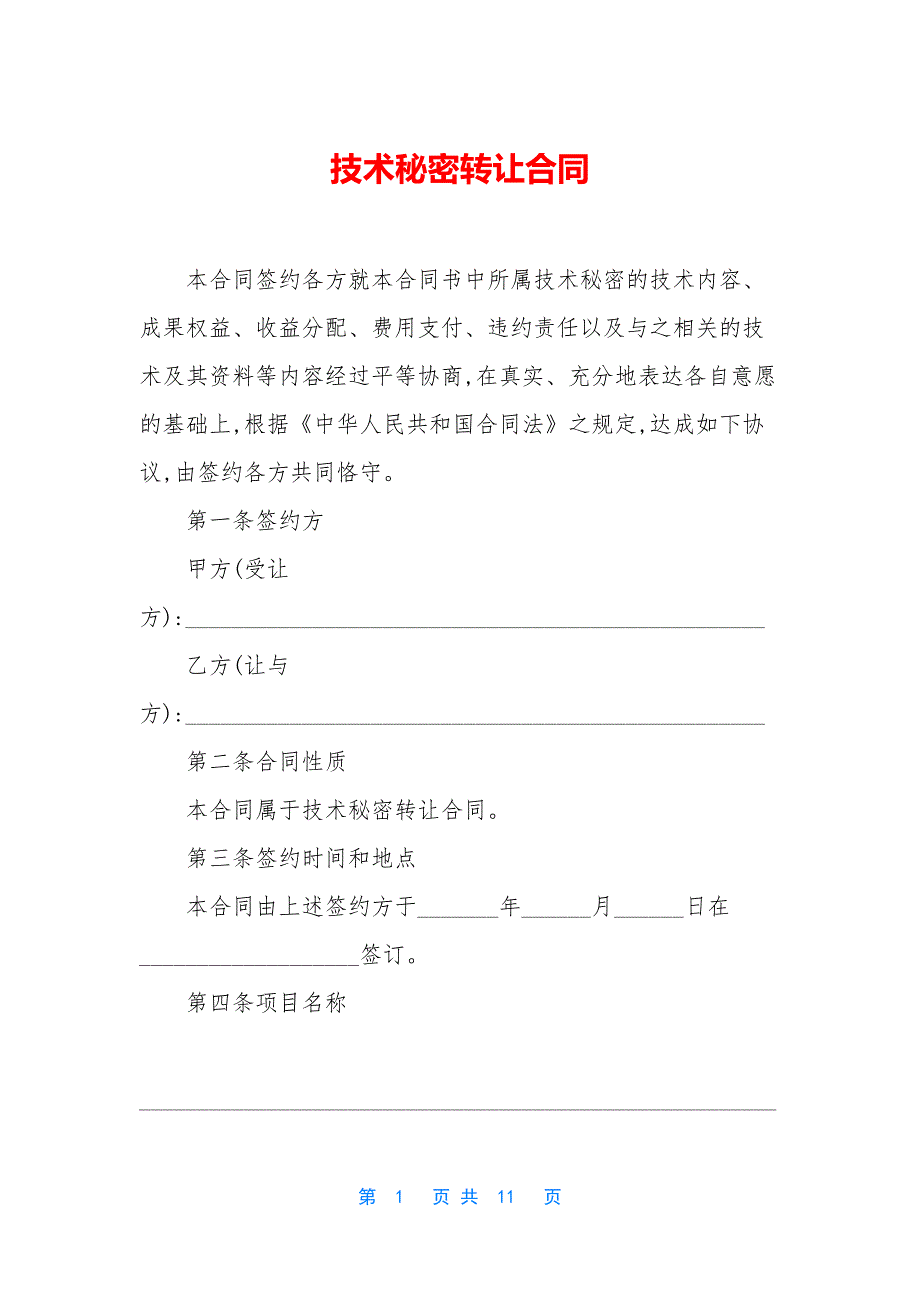 技术秘密转让合同
本合同签约各方就本合同书中所属技术秘密的技术内容、
成果权益、收益分配、费用支付、违约责任以及与之相关的技
术及其资料等内容经过平等协商,在真实、充分地表达各自意愿
的基础上,根据《中华人民共和国合同法》之规定,达成如下协
议,由签约各方共同恪守。
第一条签约方
甲方(受让
方):__________________________________________________
乙方(让与
方):__________________________________________________
第二条合同性质
本合同属于技术秘密转让合同。
第三条签约时间和地点
本合同由上述签约方于_______年______月______日在
___________________签订。
第四条项目名称
_______________________________________________________
第 1 页 共 11 页